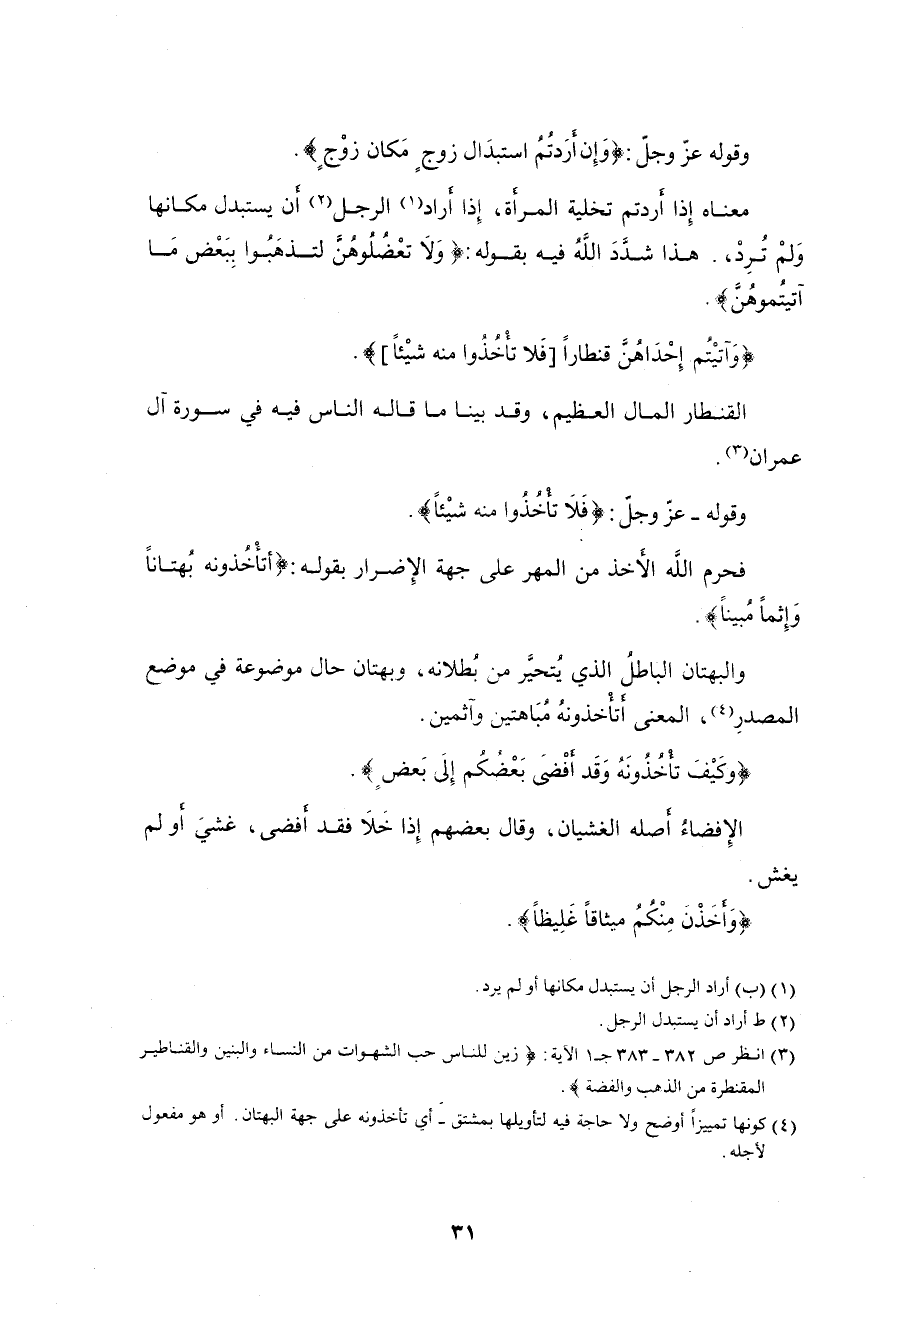 وقوله عزّ وجلّ : ﴿وَإِن أَردتُمُ استبدَال زوجٍ مَكان زوْجٍ﴾ .
معنـاه إذا أردتم تخلية المـرأة، إذا أراد(١) الرجـل(٢) أَن يستبدل مكـانها
وَلمْ تُـرِدْ، . هـذا شـدَّدَ اللَّهُ فيـه بقـولـه : ﴿ وَلَا تعْضُلُوهُنَّ لتـذهَبُـوا بِبَعْضِ مَـا
آتيتُموهُنَّ﴾ .
﴿وَآتيْتُم إِحْدَاهُنَّ قنطاراً [فَلا تأْخُذُوا منه شيْئاً]﴾ .
القنـطار المـال العـظيم، وقـد بينـا مـا قـالـه النـاس فيـه في سـورة آل
عمران(٣) .
وقوله ـ عزّ وجلّ : ﴿فَلَا تأْخُذُوا منه شيْئاً﴾ .
فحرم اللَّه الأَخذ من المهر على جهة الإضـرار بقولـه : ﴿أتأْخُذونه بُهتـاناً
وَإثماً مُبيناً﴾ .
والبهتان الباطلُ الذي يُتحيَّر من بُطلانه، وبهتان حال موضوعة في موضع
المصدرِ(٤)، المعنى أَتأْخذونهُ مُبَاهتين وآثمين .
﴿وكَيْفَ تأْخُذُونَهُ وَقَد أَفْضَى بَعْضُكُم إلَى بَعض ٍ﴾ .
الإفضاءُ أَصله الغشيان، وقال بعضهم إذا خَلَا فقـد أَفضى، غشيَ أَو لم
يغش .
﴿وَأَخَذْنَ مِنْكُمُ ميثاقاً غَلِيظاً﴾ .
(١) (ب) أراد الرجل أن يستبدل مكانها أو لم يرد .
(٢) ط أراد أن يستبدل الرجل .
(٣) انـظر ص ٣٨٢ ـ ٣٨٣ جـ١ الآية : ﴿ زين للنـاس حب الشهـوات من النسـاء والبنين والقنـاطيـر
المقنطرة من الذهب والفضة ﴾ .
(٤) كونها تمييزاً أوضح ولا حاجة فيه لتأويلها بمشتق ـ أي تأخذونه على جهة البهتان . أو هو مفعول
لأجله .
٣١